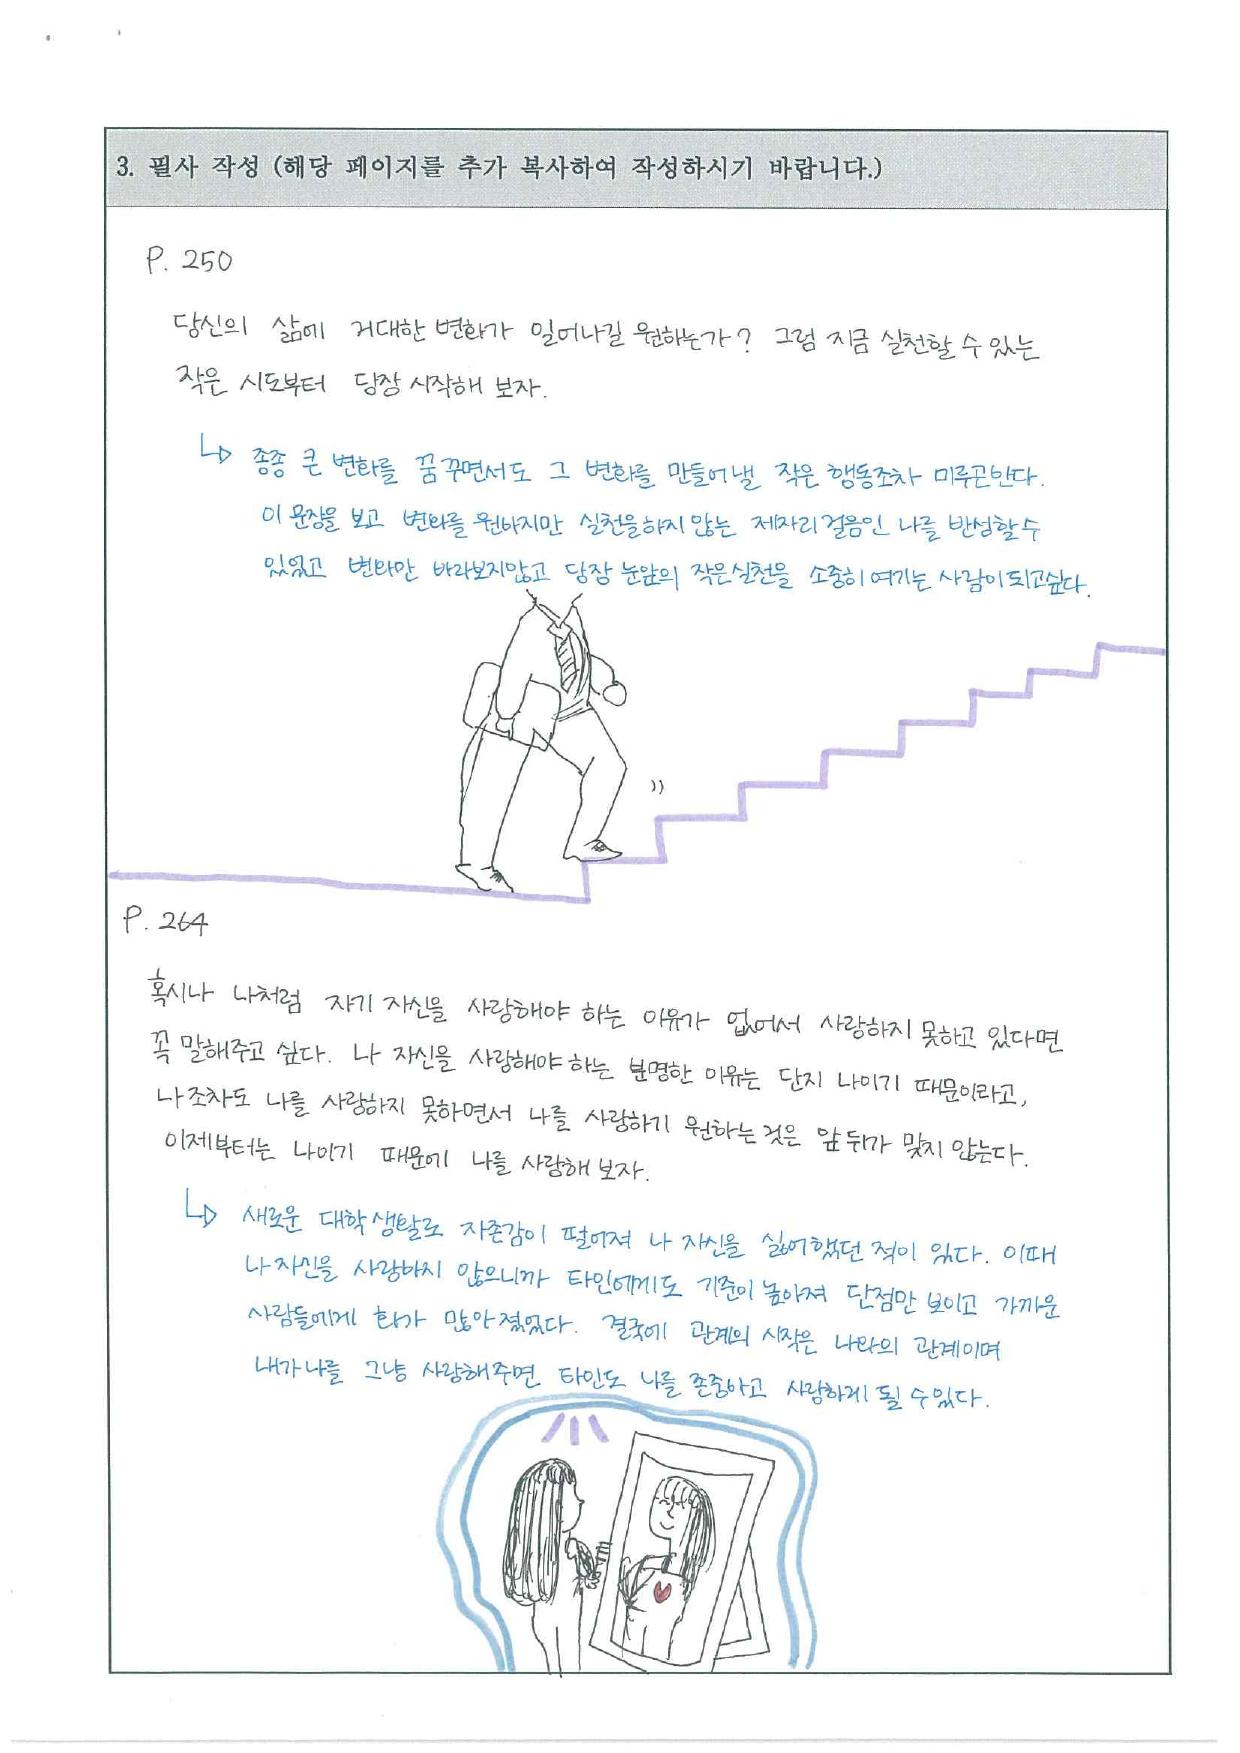 3. 필사 작성 (해당 페이지를 추가 복사하여 작성하시기 바랍니다.)
P. 250
당신의 삶에 거대한 변화가 일어나길 원하는가? 그럼 지금 실천할 수 있는
작은 시도부터 당장 시작해 보자.
↳ 종종 큰 변화를 꿈꾸면서도 그 변화를 만들어낼 작은 행동조차 미루곤한다.
이 문장을 보고 변화를 원하지만 실천을하지 않는 제자리 걸음인 나를 반성할 수
있었고 변화만 바라보지않고 당장 눈앞의 작은실천을 소중히 여기는 사람이 되고싶다.
P. 264
혹시나 나처럼 자기 자신을 사랑해야 하는 이유가 없어서 사랑하지 못하고 있다면
꼭 말해주고 싶다. 나 자신을 사랑해야 하는 분명한 이유는 단지 나이기 때문이라고,
나조차도 나를 사랑하지 못하면서 나를 사랑하기 원하는 것은 앞뒤가 맞지 않는다.
이제부터는 나이기 때문에 나를 사랑해 보자.
↳ 새로운 대학생활로 자존감이 떨어져 나 자신을 싫어했던 적이 있다. 이때
나 자신을 사랑하지 않으니까 타인에게도 기준이 높아져 단점만 보이고 가까운
사람들에게 화가 많아졌었다. 결국에 관계의 시작은 나와의 관계이며
내가 나를 그냥 사랑해주면 타인도 나를 존중하고 사랑하게 될 수 있다.